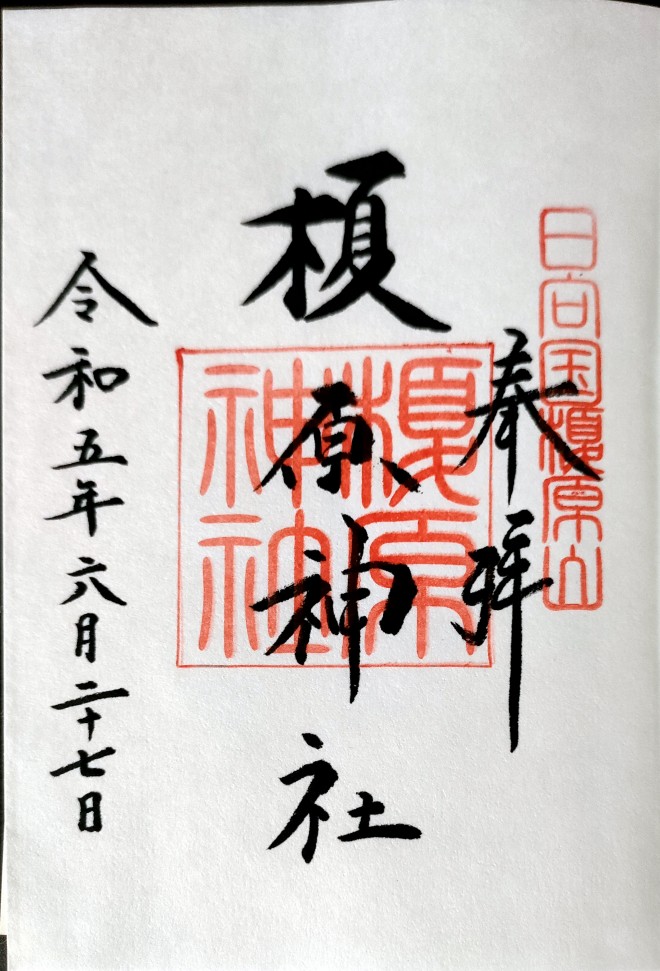 日向国榎原山
奉拝
榎原神社
榎原
神社
令和五年六月二十七日